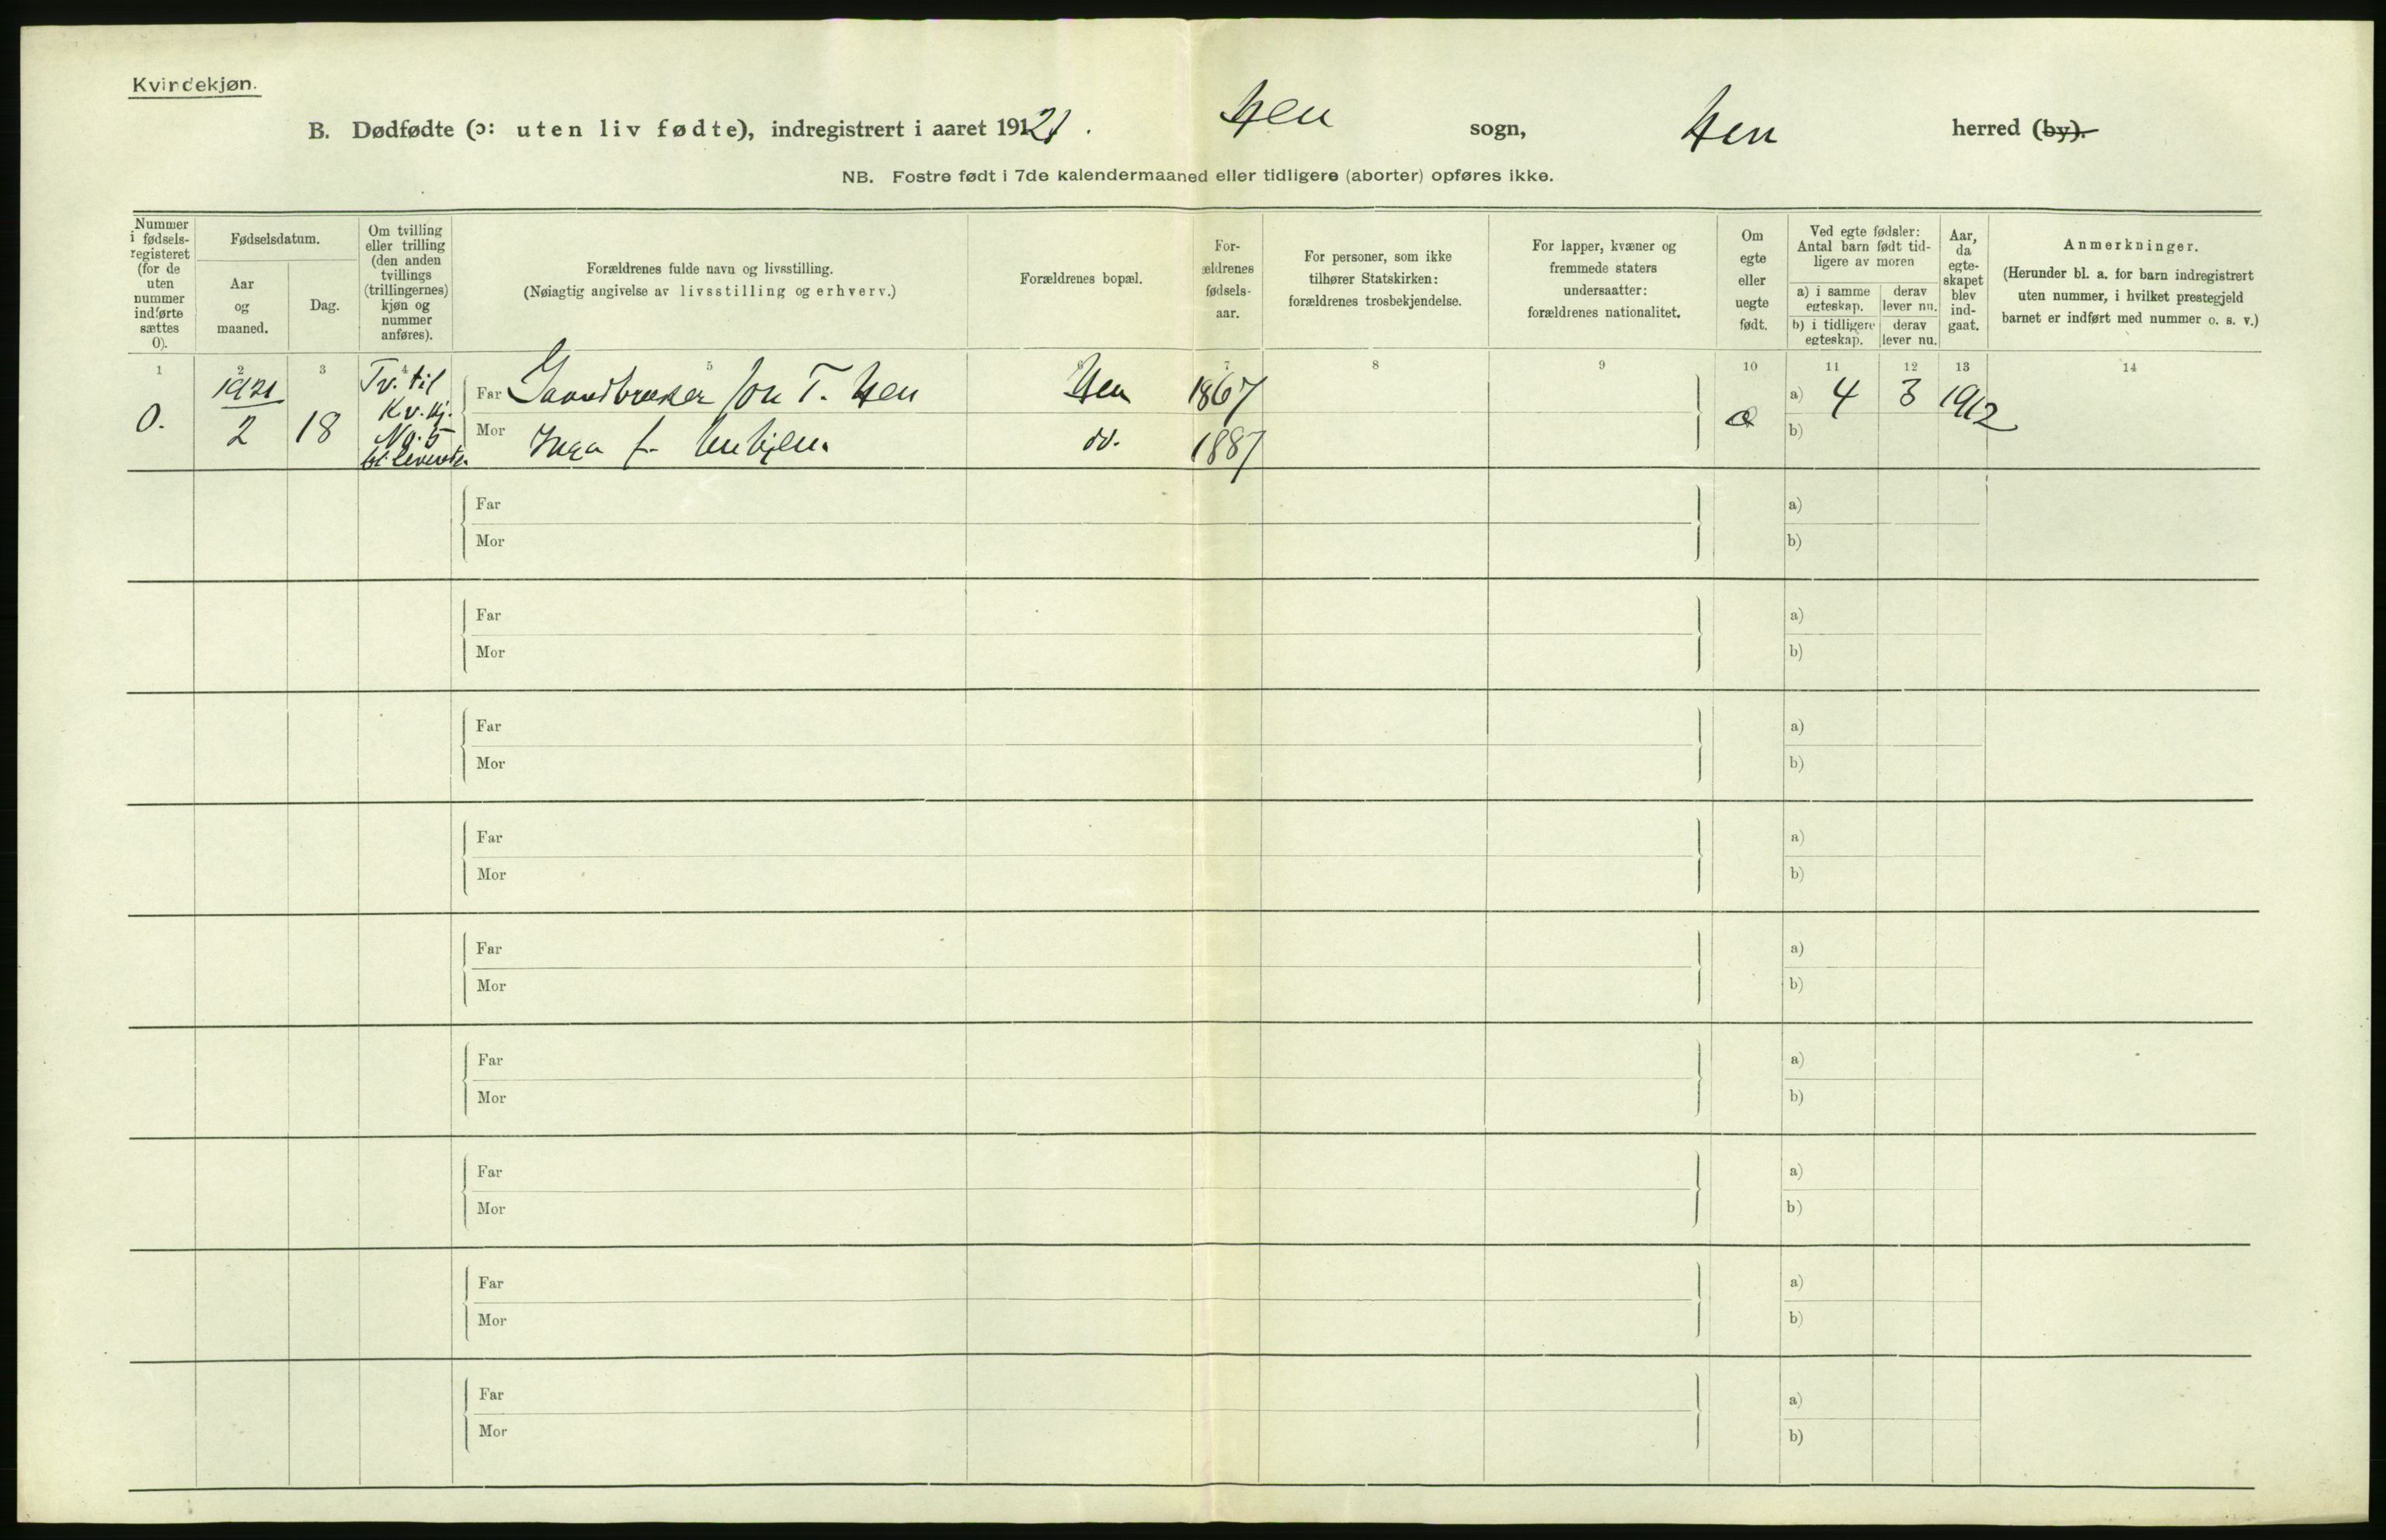 Kvindekjøn.
B. Dødfødte (ɔ: uten liv fødte), indregistrert i aaret 1921. Hen sogn, Hen herred (by).
NB. Fostre født i 7de kalendermaaned eller tidligere (aborter) opføres ikke.
Nummer i fødsels-registeret (for de uten nummer indførte sættes 0).
Fødselsdatum.
Aar og maaned.
Dag.
Om tvilling eller trilling (den anden tvillings (trillingernes) kjøn og nummer anføres).
Forældrenes fulde navn og livsstilling.
(Nøiagtig angivelse av livsstilling og erhverv.)
Forældrenes bopæl.
For-ældrenes fødsels-aar.
For personer, som ikke tilhører Statskirken: forældrenes trosbekjendelse.
For lapper, kvæner og fremmede staters undersaatter: forældrenes nationalitet.
Om egte eller uegte født.
Ved egte fødsler: Antal barn født tid-ligere av moren
a) i samme egteskap.
derav lever nu.
b) i tidligere egteskap.
derav lever nu.
Aar, da egte-skapet blev ind-gaat.
Anmerkninger.
(Herunder bl. a. for barn indregistrert uten nummer, i hvilket prestegjeld barnet er indført med nummer o. s. v.)
1 2 3 4 5 6 7 8 9 10 11 12 13 14
0. 1921 2 18
Tv. til
Kv. kj.
No. 5
Far Gaardbruker Jon T. Hen Hen 1867 a) 4 3 1912
Mor Inga f. do. 1887 b)
Far a)
Mor b)
Far a)
Mor b)
Far a)
Mor b)
Far a)
Mor b)
Far a)
Mor b)
Far a)
Mor b)
Far a)
Mor b)
Far a)
Mor b)
Far a)
Mor b)